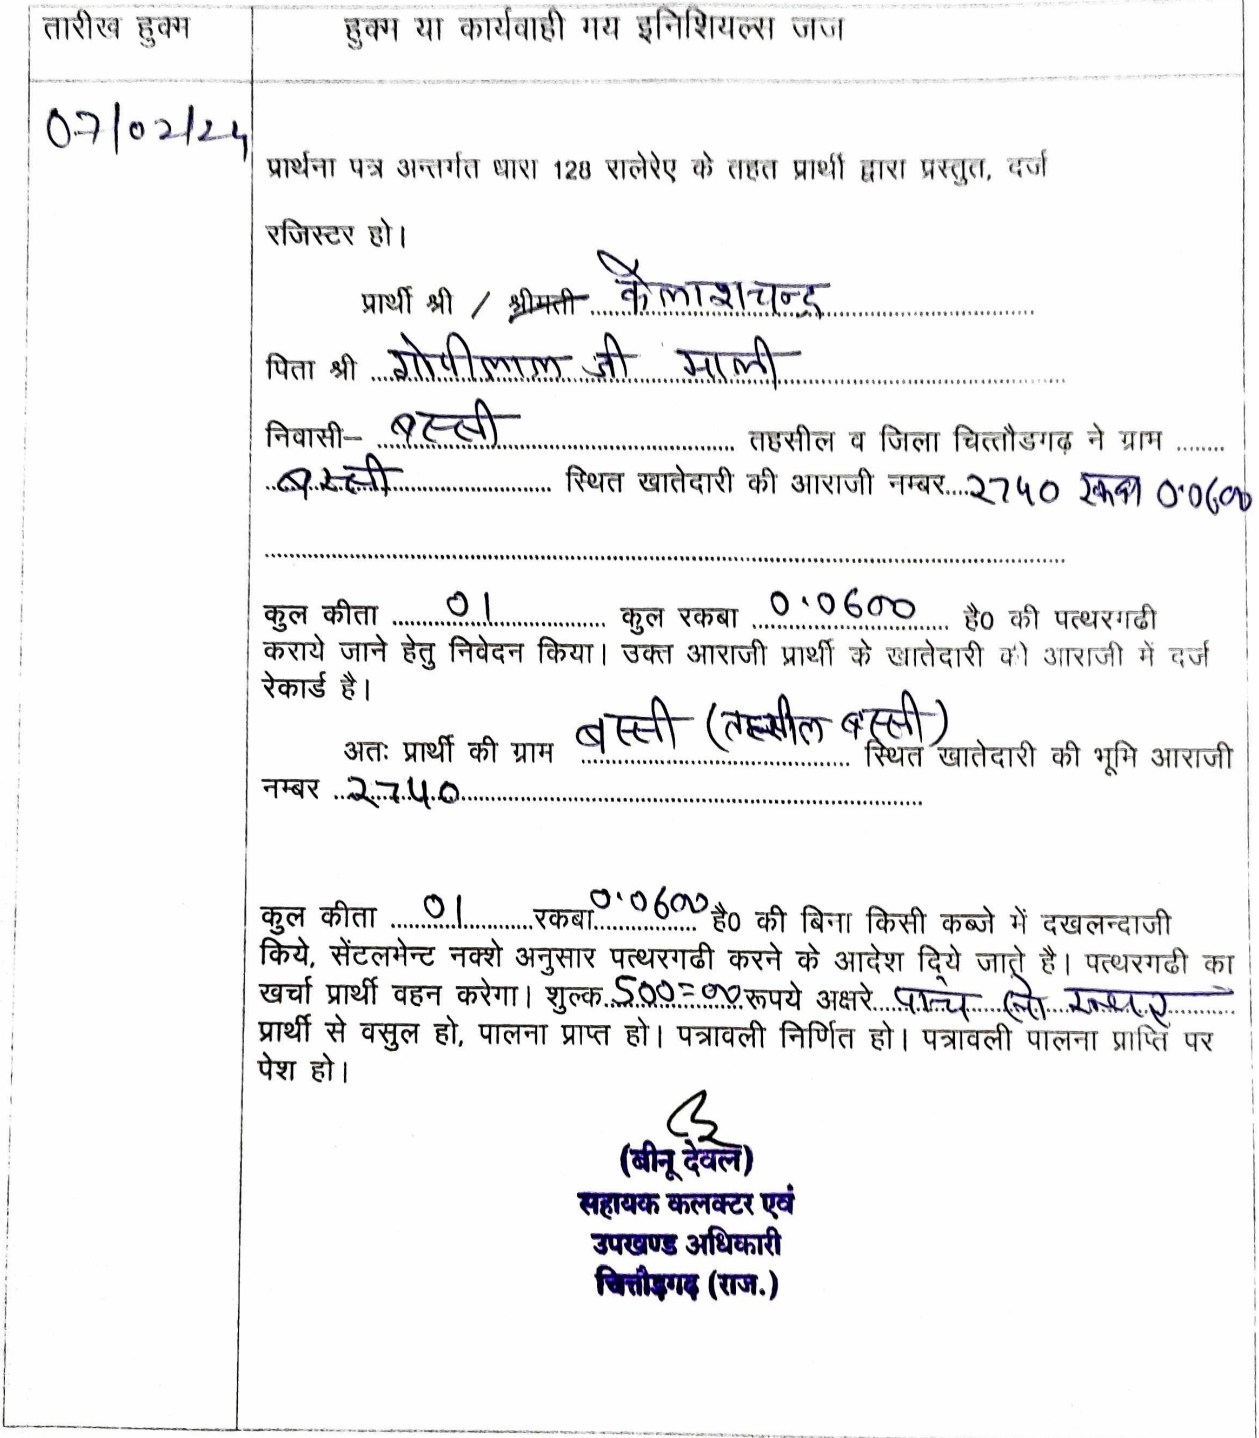 तारीख हुक्म	हुक्म या कार्यवाही गय इनिशियल्स जज
07/02/24
प्रार्थना पत्र अन्तर्गत धारा 128 रालेरेए के तहत प्रार्थी द्वारा प्रस्तुत, दर्ज
रजिस्टर हो।
प्रार्थी श्री / श्रीमती कैलाशचन्द्र
पिता श्री गोपीलाल जी माली
निवासी– बस्सी तहसील व जिला चित्तौडगढ़ ने ग्राम
बस्सी स्थित खातेदारी की आराजी नम्बर 2740 रकबा 0.0600
कुल कीता 01 कुल रकबा 0.0600 है0 की पत्थरगढी
कराये जाने हेतु निवेदन किया। उक्त आराजी प्रार्थी के खातेदारी की आराजी में दर्ज
रेकार्ड है।
अतः प्रार्थी की ग्राम बस्सी (तहसील बस्सी) स्थित खातेदारी की भूमि आराजी
नम्बर 2740
कुल कीता 01 रकबा 0.0600 है0 की बिना किसी कब्जे में दखलन्दाजी
किये, सेंटलमेन्ट नक्शे अनुसार पत्थरगढी करने के आदेश दिये जाते है। पत्थरगढी का
खर्चा प्रार्थी वहन करेगा। शुल्क 500=00 रूपये अक्षरे पान्च सो
प्रार्थी से वसुल हो, पालना प्राप्त हो। पत्रावली निर्णित हो। पत्रावली पालना प्राप्ति पर
पेश हो।
(बीनू देवल)
सहायक कलक्टर एवं
उपखण्ड अधिकारी
चित्तौड़गढ़ (राज.)